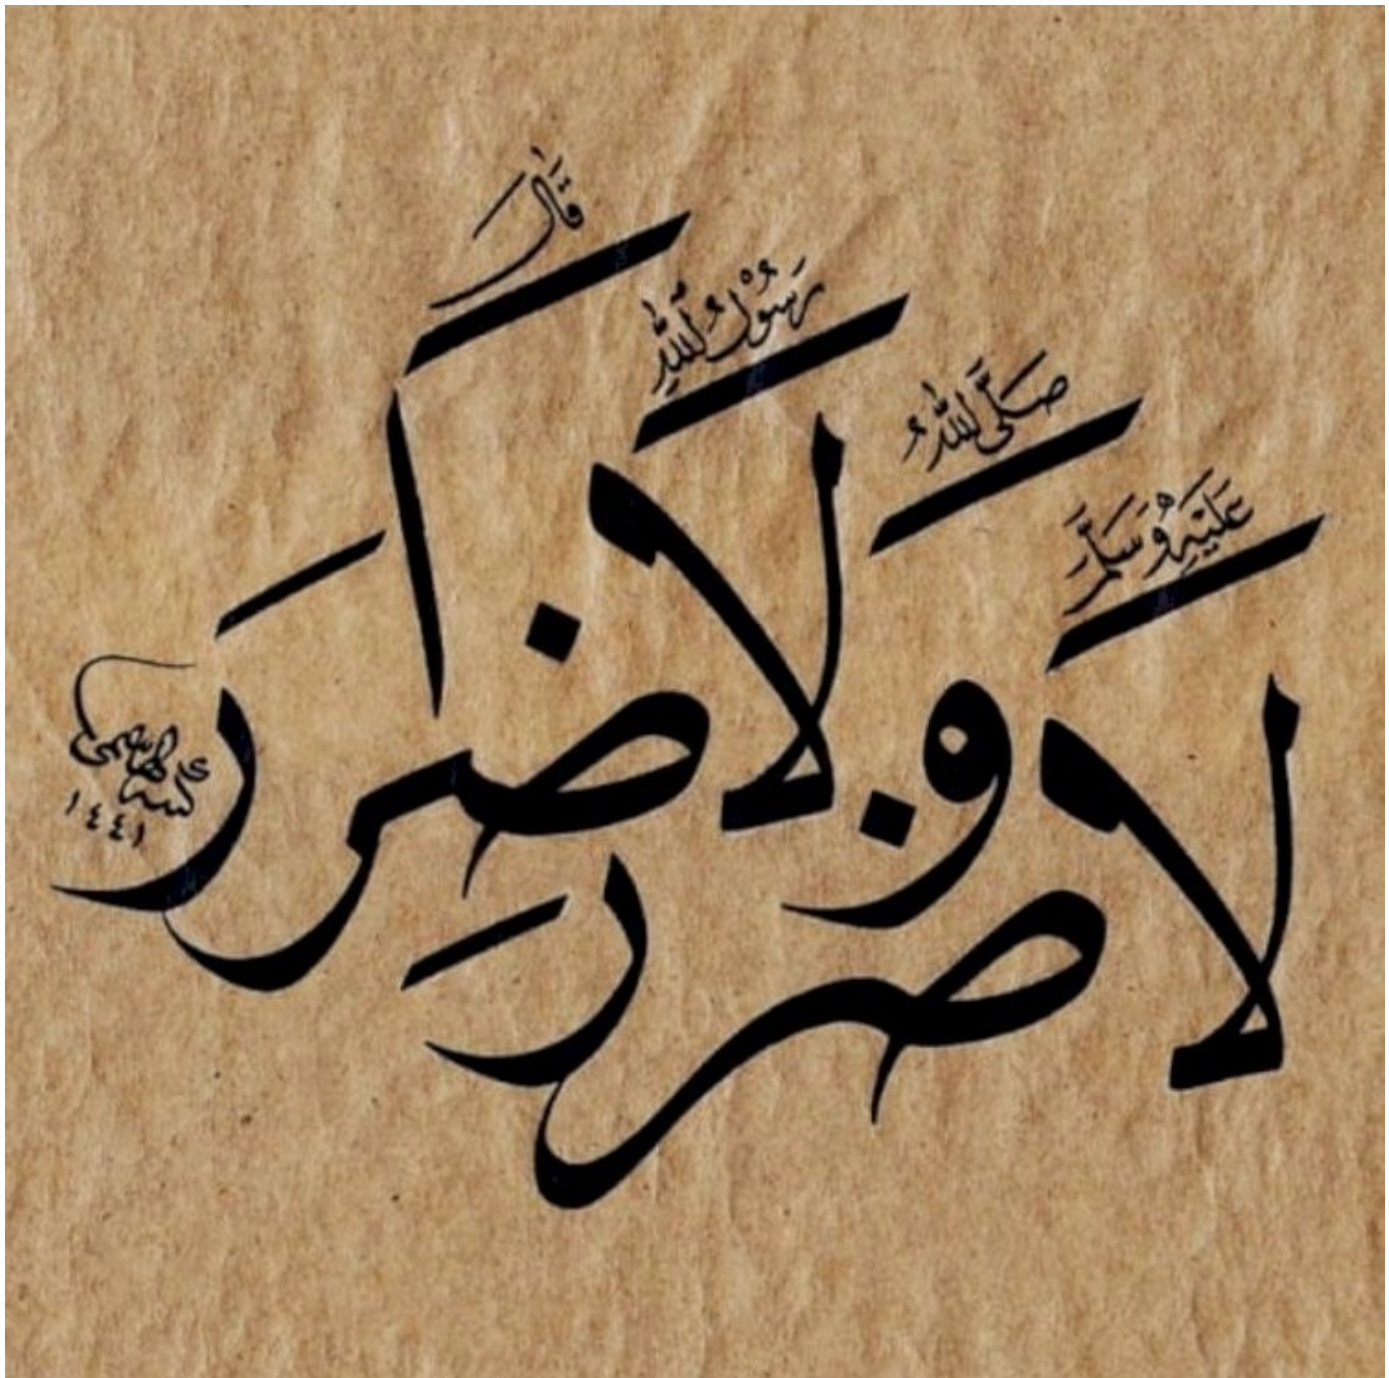 قَالَ
رَسُوْلُ ٱللّٰهِ
صَلَّى ٱللّٰهُ
عَلَيْهِ وَسَلَّمَ
لَا ضَرَرَ وَلَا ضِرَارَ
١٤٤١